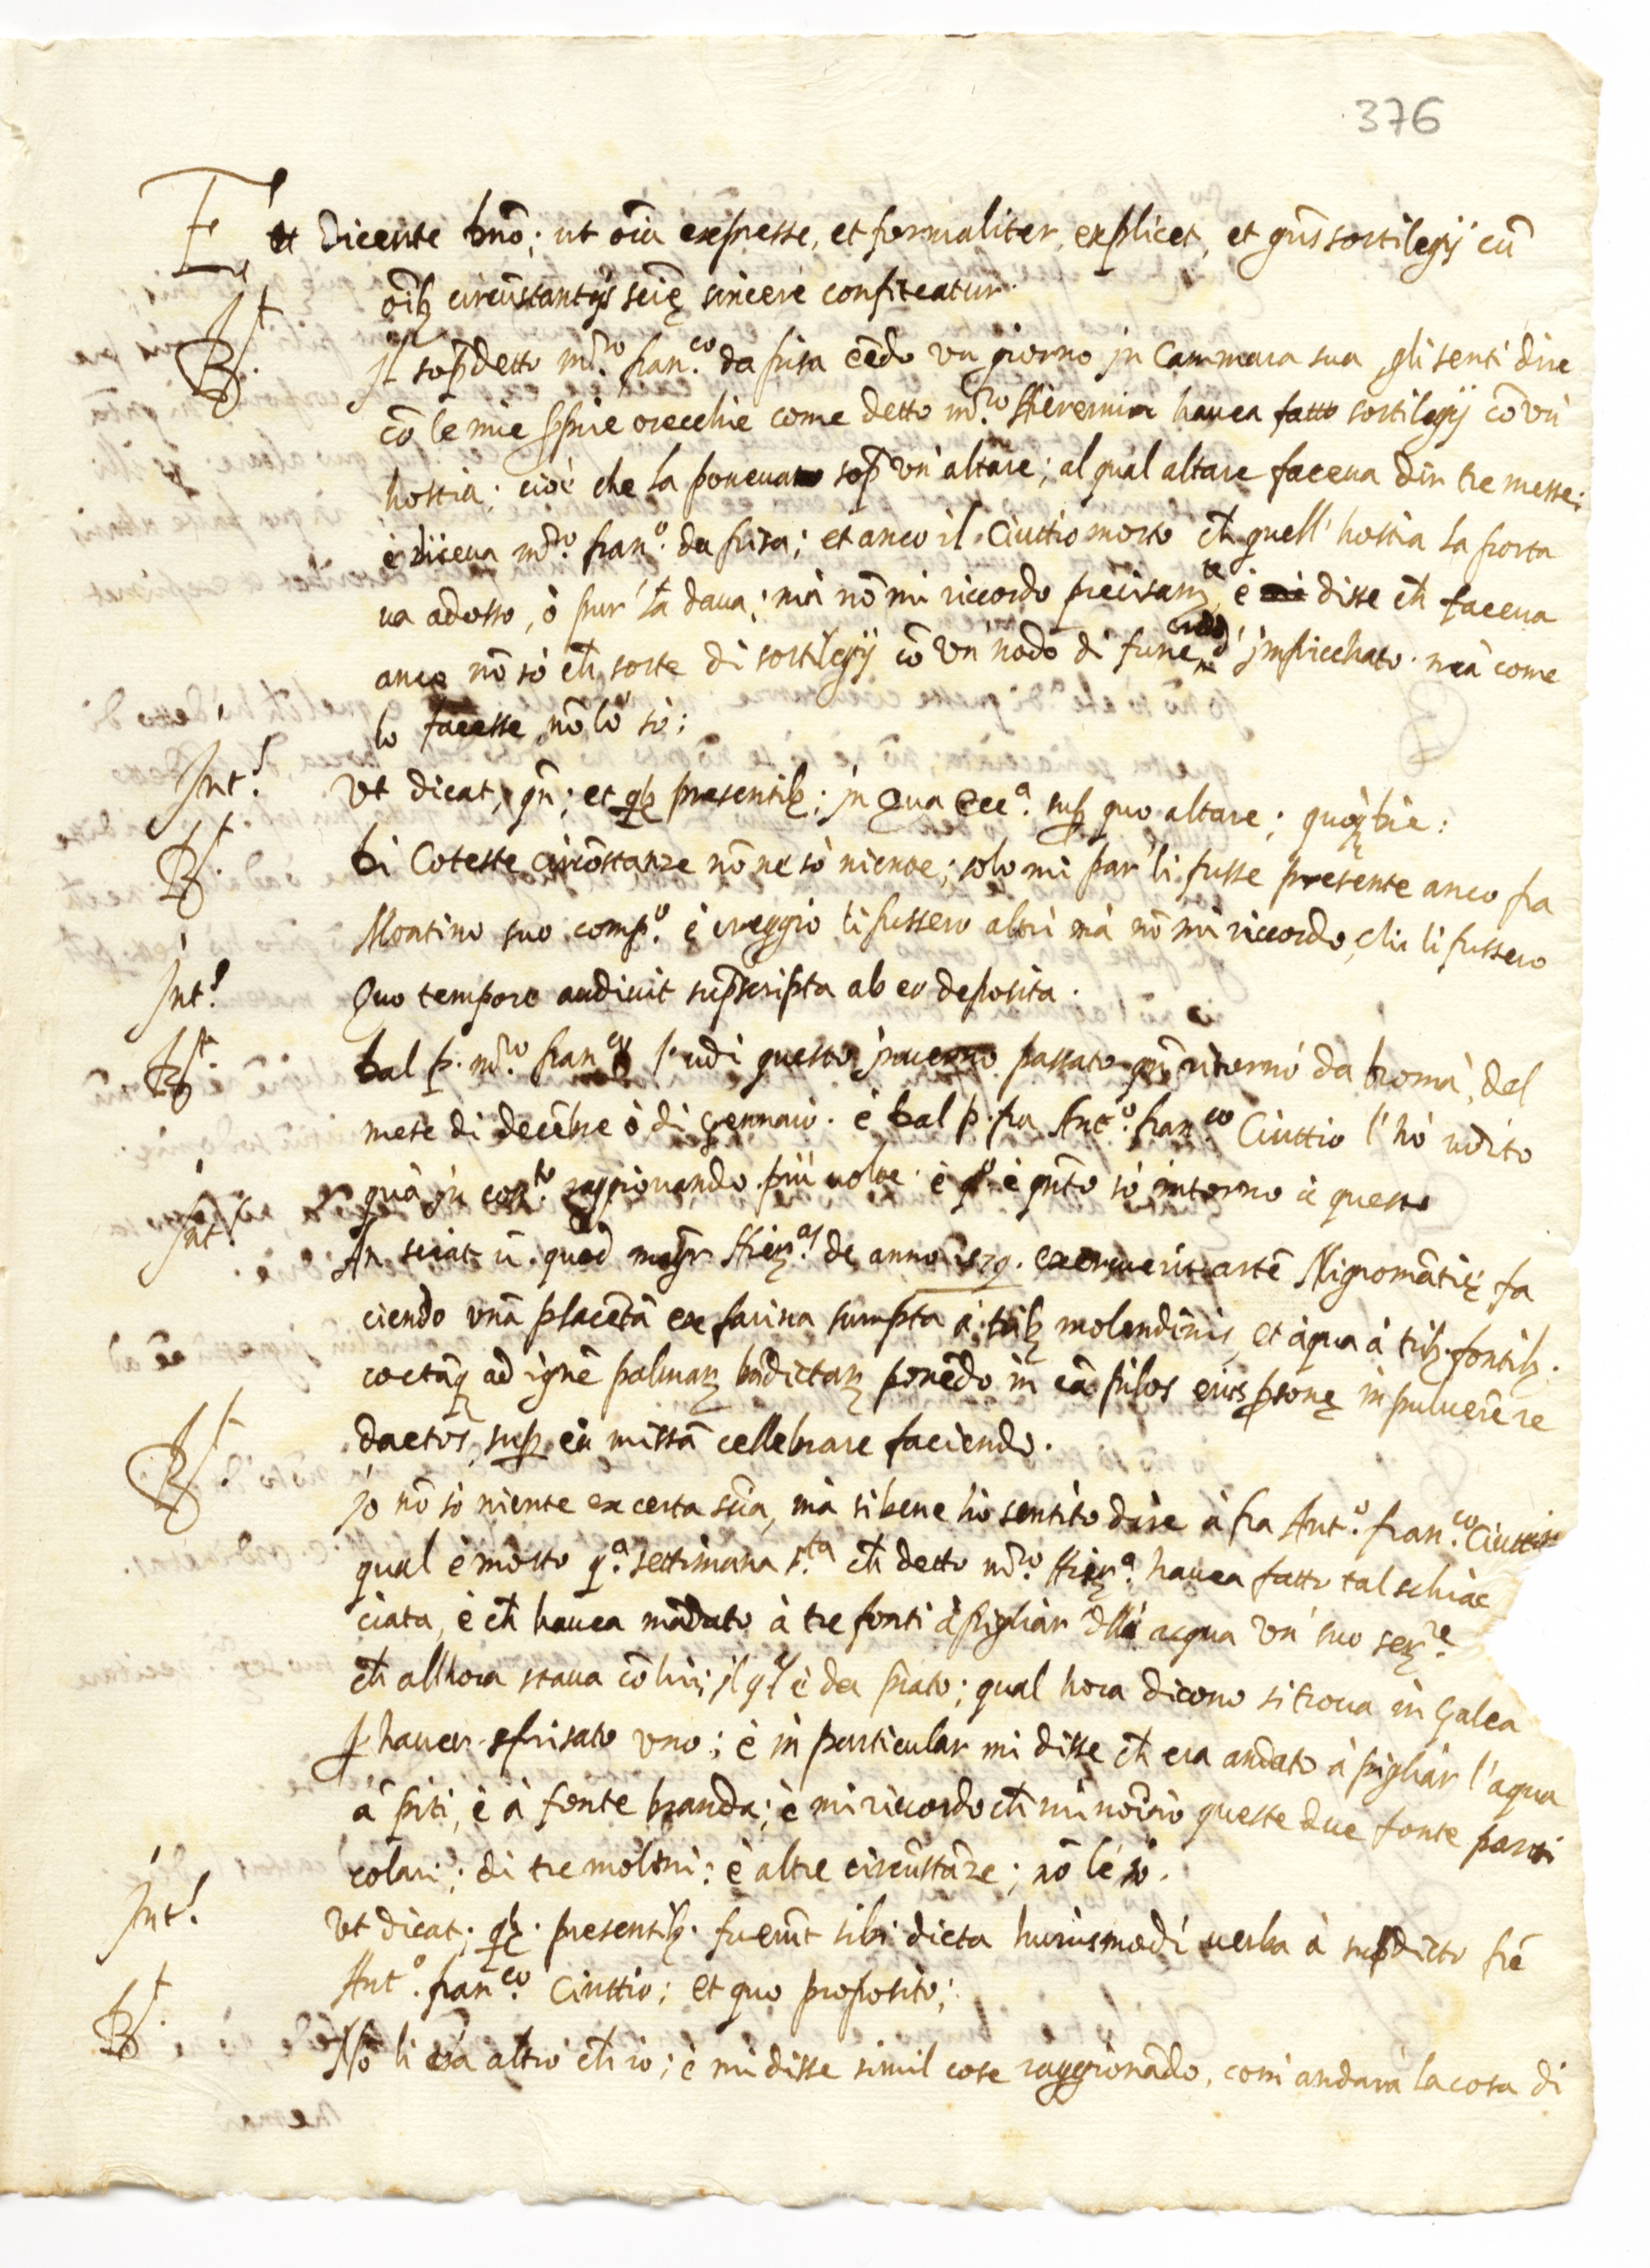 376
Et dicente dno; ut oĩa expresse, et formaliter explicet, et gñs sortilegij cũ
oĩb circũstantijs scię sincere confiteatur.
Rt. Jl sop̃detto m͂ro. franco. da pisa eẽdo un giorno jn Cammara sua gli senti dire
cõ le mie ꝓprie orecchie come detto m͂ro Hieremia hauea fatto sortilegij cõ un'
hostia; cioè che la poneua sop̃ un'altare; al qual altare faceua dir tre messe;
è diceua m͂ro. frano. da pisa; et anco il Ciuttio morto ch̃ quell' hostia la porta
ua adosso, ò pur' la daua; mà nõ mi riccordo precisamte, è disse ch̃ faceua
anco nõ sò ch̃ sorte di sortilegij cõ un' nodo di fune d'jmpicchato. mà come
lo facesse nõ lo sò;
Int. Ut dicat, qñ; et qb presentib; jn qua Ecca. sup quo altare;
Rt. Di Coteste circõstanze nõ ne sò niente; solo mi par' li fusse presente anco fra
Montino suo compo. è creggio li fussero altri mà nõ mi riccordo, chi li fussero
Int. Quo tempore audiuit sup̃scripta ab eo deposita.
Rt. Dal p. m͂ro. franco l'udi questo jnuerno passato qñ ritornò da Roma, del
mese di decẽbre ò di Gennaio. è dal p. fra Anto. franco Ciuttio l'hò udito
quà jn conto. raggionando più uolte è è qñto sò intorno à questo
Int. An sciat ũ. quod magr Hieras. de anno 1579. exercuerit artẽ Nigromãtię fa
ciendo unã placẽtã ex farina sumpta à trib molendinis, et aqua à trib. fontib.
coctãq ad ignẽ palmar bñdictar ponẽdo in eã pilos eius ꝑsonę in puluerẽ re
dactos, sup eã missã cellebrare faciendo.
Rt. Jo nõ sò niente ex certa scĩa, mà si bene hò sentito dire à fra Anto. franco. Ciuttio
qual è morto qa. settimana sta ch̃ detto m͂ro. Hiera. hauea fatto tal schiac
ciata, è ch̃ hauea mãdato à tre fonti à pigliar dllà acqua un' suo serre.
ch̃ allhora staua cõ lui; jl ql è da prato; qual hora dicono si troua in Galea
ꝑ hauer sfrisato uno; è in particular mi disse ch̃ era andato à pigliar l'aqua
à piti, è à fonte branda; è mi riccordo ch̃ mi nomĩo queste due fonte parti
colari; di tre molini; è altre circũstãze; nõ le sò.
Int. Ut dicat; qb. presentib. fuerũt sibi dicta huiusmodi uerba à sup̃dicto frẽ
Anto. franco. Ciuttio; et quo proposito;
Rt. Nõ li era altro ch̃ io; è mi disse simil cose raggionãdo, com' andarà la cosa di